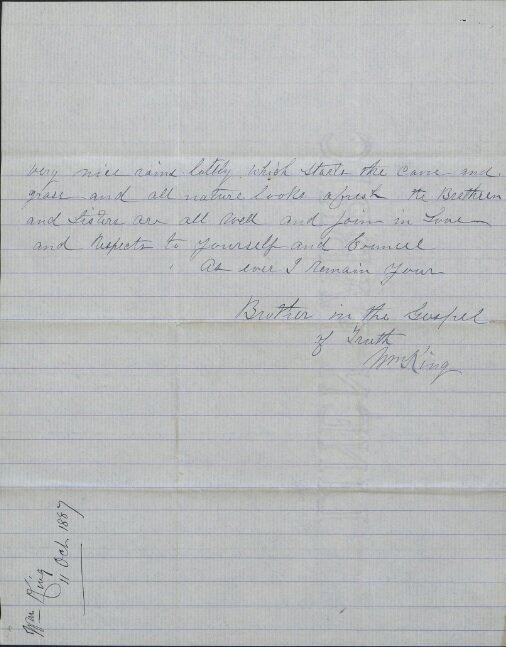 very nice rains lettly which starts the cane and
grass and all nature looks afresh the Brethren
and Sisters are all well and join in Love
and Respects to yourself and Council
As ever I Remain your
Brother in the Gospel
of Truth
Wm King
Wm King
11 Oct. 1887